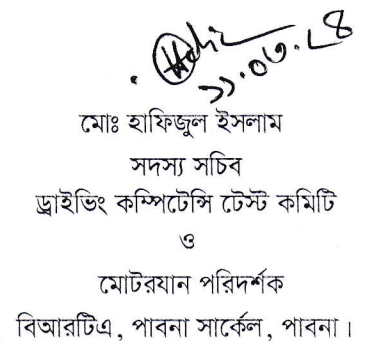 মোঃ হাফিজুল ইসলাম
সদস্য সচিব
ড্রাইভিং কম্পিটেন্সি টেস্ট কমিটি
ও
মোটরযান পরিদর্শক
বিআরটিএ, পাবনা সার্কেল, পাবনা।